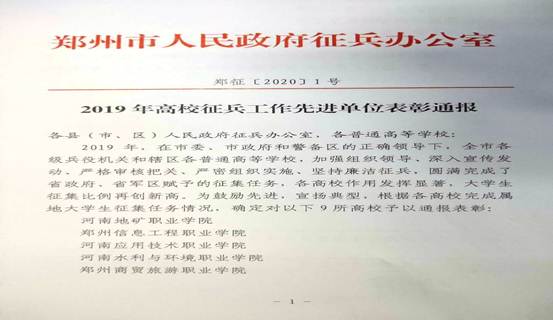 郑州市人民政府征兵办公室
郑征〔2020〕1号
2019年高校征兵工作先进单位表彰通报
各县（市、区）人民政府征兵办公室，各普通高等学校：
2019年，在市委、市政府和警备区的正确领导下，全市各
级兵役机关和辖区各普通高等学校，加强组织领导、深入宣传发
动、严格审核把关、严密组织实施、坚持廉洁征兵，圆满完成了
省政府、省军区赋予的征集任务，各高校作用发挥显著，大学生
征集比例再创新高。为鼓励先进，宣扬典型，根据各高校完成属
地大学生征集任务情况，确定对以下9所高校予以通报表彰：
河南地矿职业学院
郑州信息工程职业学院
河南应用技术职业学院
河南水利与环境职业学院
郑州商贸旅游职业学院
－1－